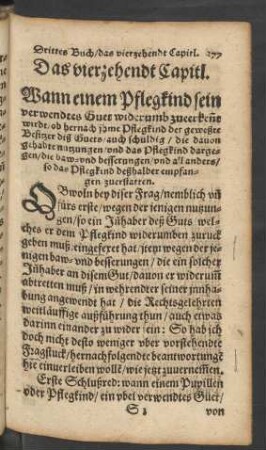 Drittes Buch/das vierzehendt Capitl. 277
Das vierzehendt Capitl.
Wann einem Pflegkind sein
verwendetes Guet widerumb zuerkent
wirdt/ob hernach jhme Pflegkind der geweßte
Besitzer diß Guets auch schuldig/die dauon
gehabte nutzungen/vnd das Pflegkind darge-
gen/die baw-vnd besserungen/vnd all anders/
so das Pflegkind deßhalber empfan-
gen zuerstatten.
OBwoln bey diser Frag/nemblich vñ
fürs erste/wegen der jenigen nutzun-
gen/so ein Jnhaber deß Guts wel-
ches er dem Pflegkind widerumben zuruck
geben muß/eingefexet hat/jtem wegen der je-
nigen baw-vnd besserungen/die ein solcher
Jnhaber an disem Gut/dauon er widerum̃
abtretten muß/in wehrendter seiner innha-
bung angewendt hat/die Rechtsgelehrten
weitläuffige außführung thun/auch etwas
darinn einander zu wider sein: So hab ich
doch nicht desto weniger vber vorstehendte
Fragstuck/hernachfolgendte beantwortungẽ
hie einuerleiben wollẽ/wie jetzt zuuernemen.
Erste Schlußred: wann einem Pupillen
oder Pflegkind/ein vbel verwendetes Guet/
S von